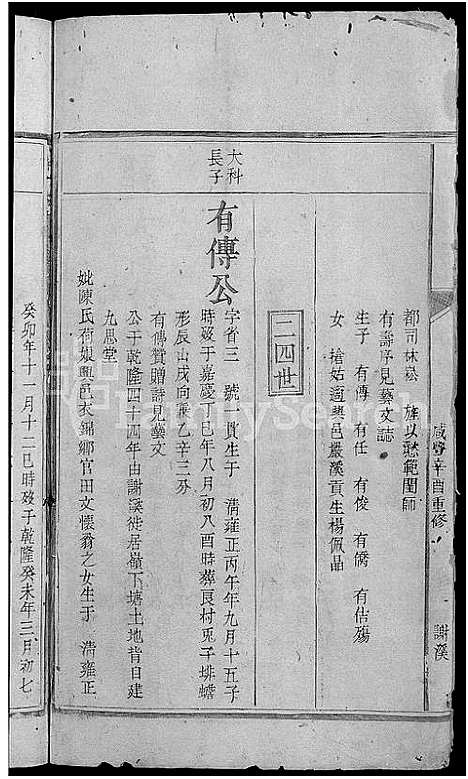 咸豐辛酉重修
謝溪
都司林崧 旌以懿範閨師
有壽序見藝文誌
生子 有傳 有任 有俊 有僑 有估殤
女 搶姑適興邑嚴溪貢生楊佩晶
二四世
大科
長子
有傳公
字省三 號一貫生于 清雍正丙午年九月十五子
時歿于嘉慶丁巳年八月初八酉時葬艮村兎子排蟾
形辰山戌向兼乙辛三分
有傅贊贈詩見藝文
公于乾隆四十四年由謝溪徙居嶺下塘土地背自建
九思堂
妣陳氏荷娘興邑衣錦鄉官田文懷翁之女生于 清雍正
癸卯年十一月十二巳時歿于乾隆癸未年三月初七
FamilySearch